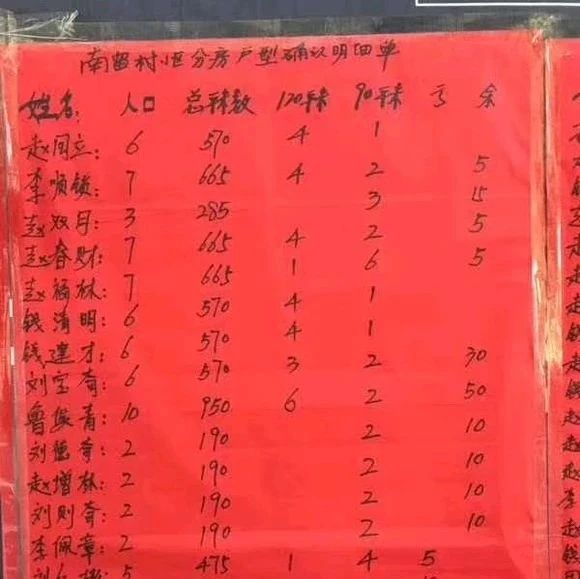 南留村小区分房户型确认明细单
姓名: 人口 总平米数 120平米 90平米 亏 余
赵国立: 6 570 4 1
李顺锁: 7 665 4 2 5
赵双月: 3 285 3 15
赵春财: 7 665 4 2 5
赵福林: 7 665 1 6 5
钱清明: 6 570 4 1
钱建才: 6 570 4 1
刘宝奇: 6 570 3 2 30
鲁俊青: 10 950 6 2 50
刘德奇: 2 190 2 10
赵增林: 2 190 2 10
刘则奇: 2 190 2 10
李佩章: 2 190 2 10
5 475 1 4 5